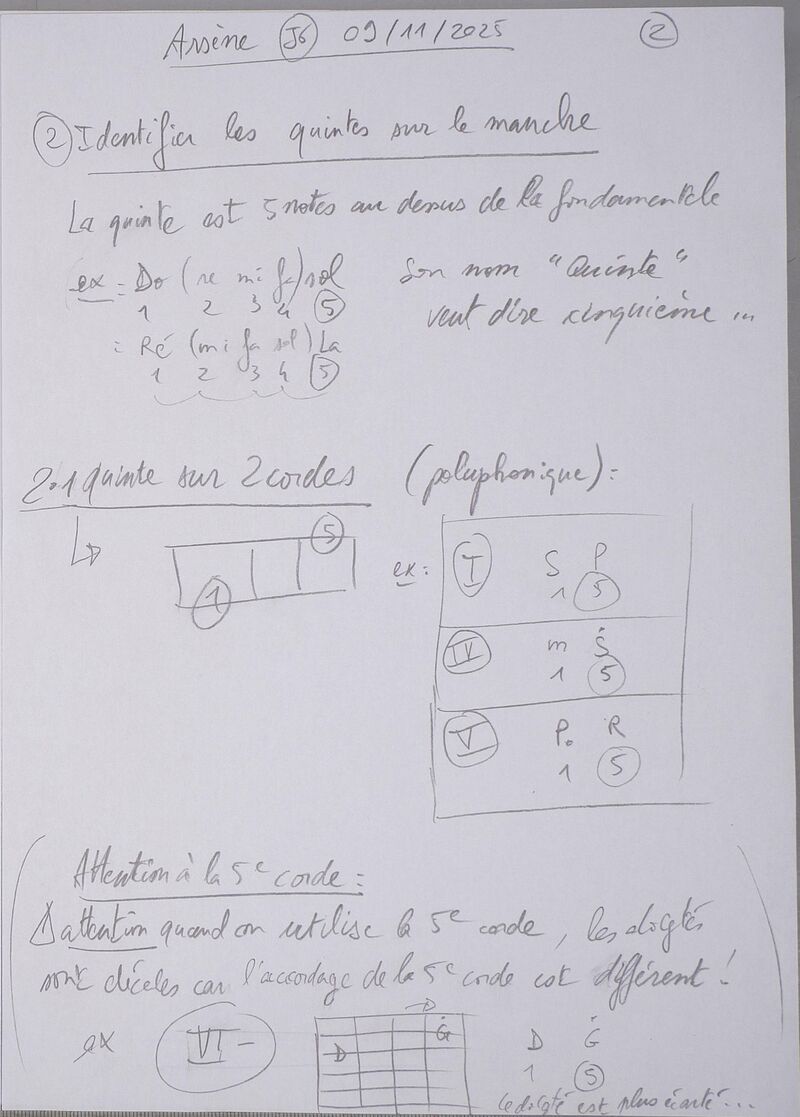 Arsène J6 09/11/2025 2
2 Identifier les quintes sur le manche
La quinte est 5 notes au dessus de la fondamentale
ex = Do (re mi fa) sol
1 2 3 4 5
Son nom "Quinte"
veut dire cinquième ...
: Ré (mi fa sol) La
1 2 3 4 5
2.1 quinte sur 2 cordes (polyphonique) :
5
1
ex : I S P
1 5
IV m Ṡ
1 5
V P. R
1 5
Attention à la 5e corde :
attention quand on utilise la 5e corde, les doigtés
sont décelés car l'accordage de la 5e corde est différent !
ex VI- D Ġ D Ġ
1 5
le doigté est plus écarté...